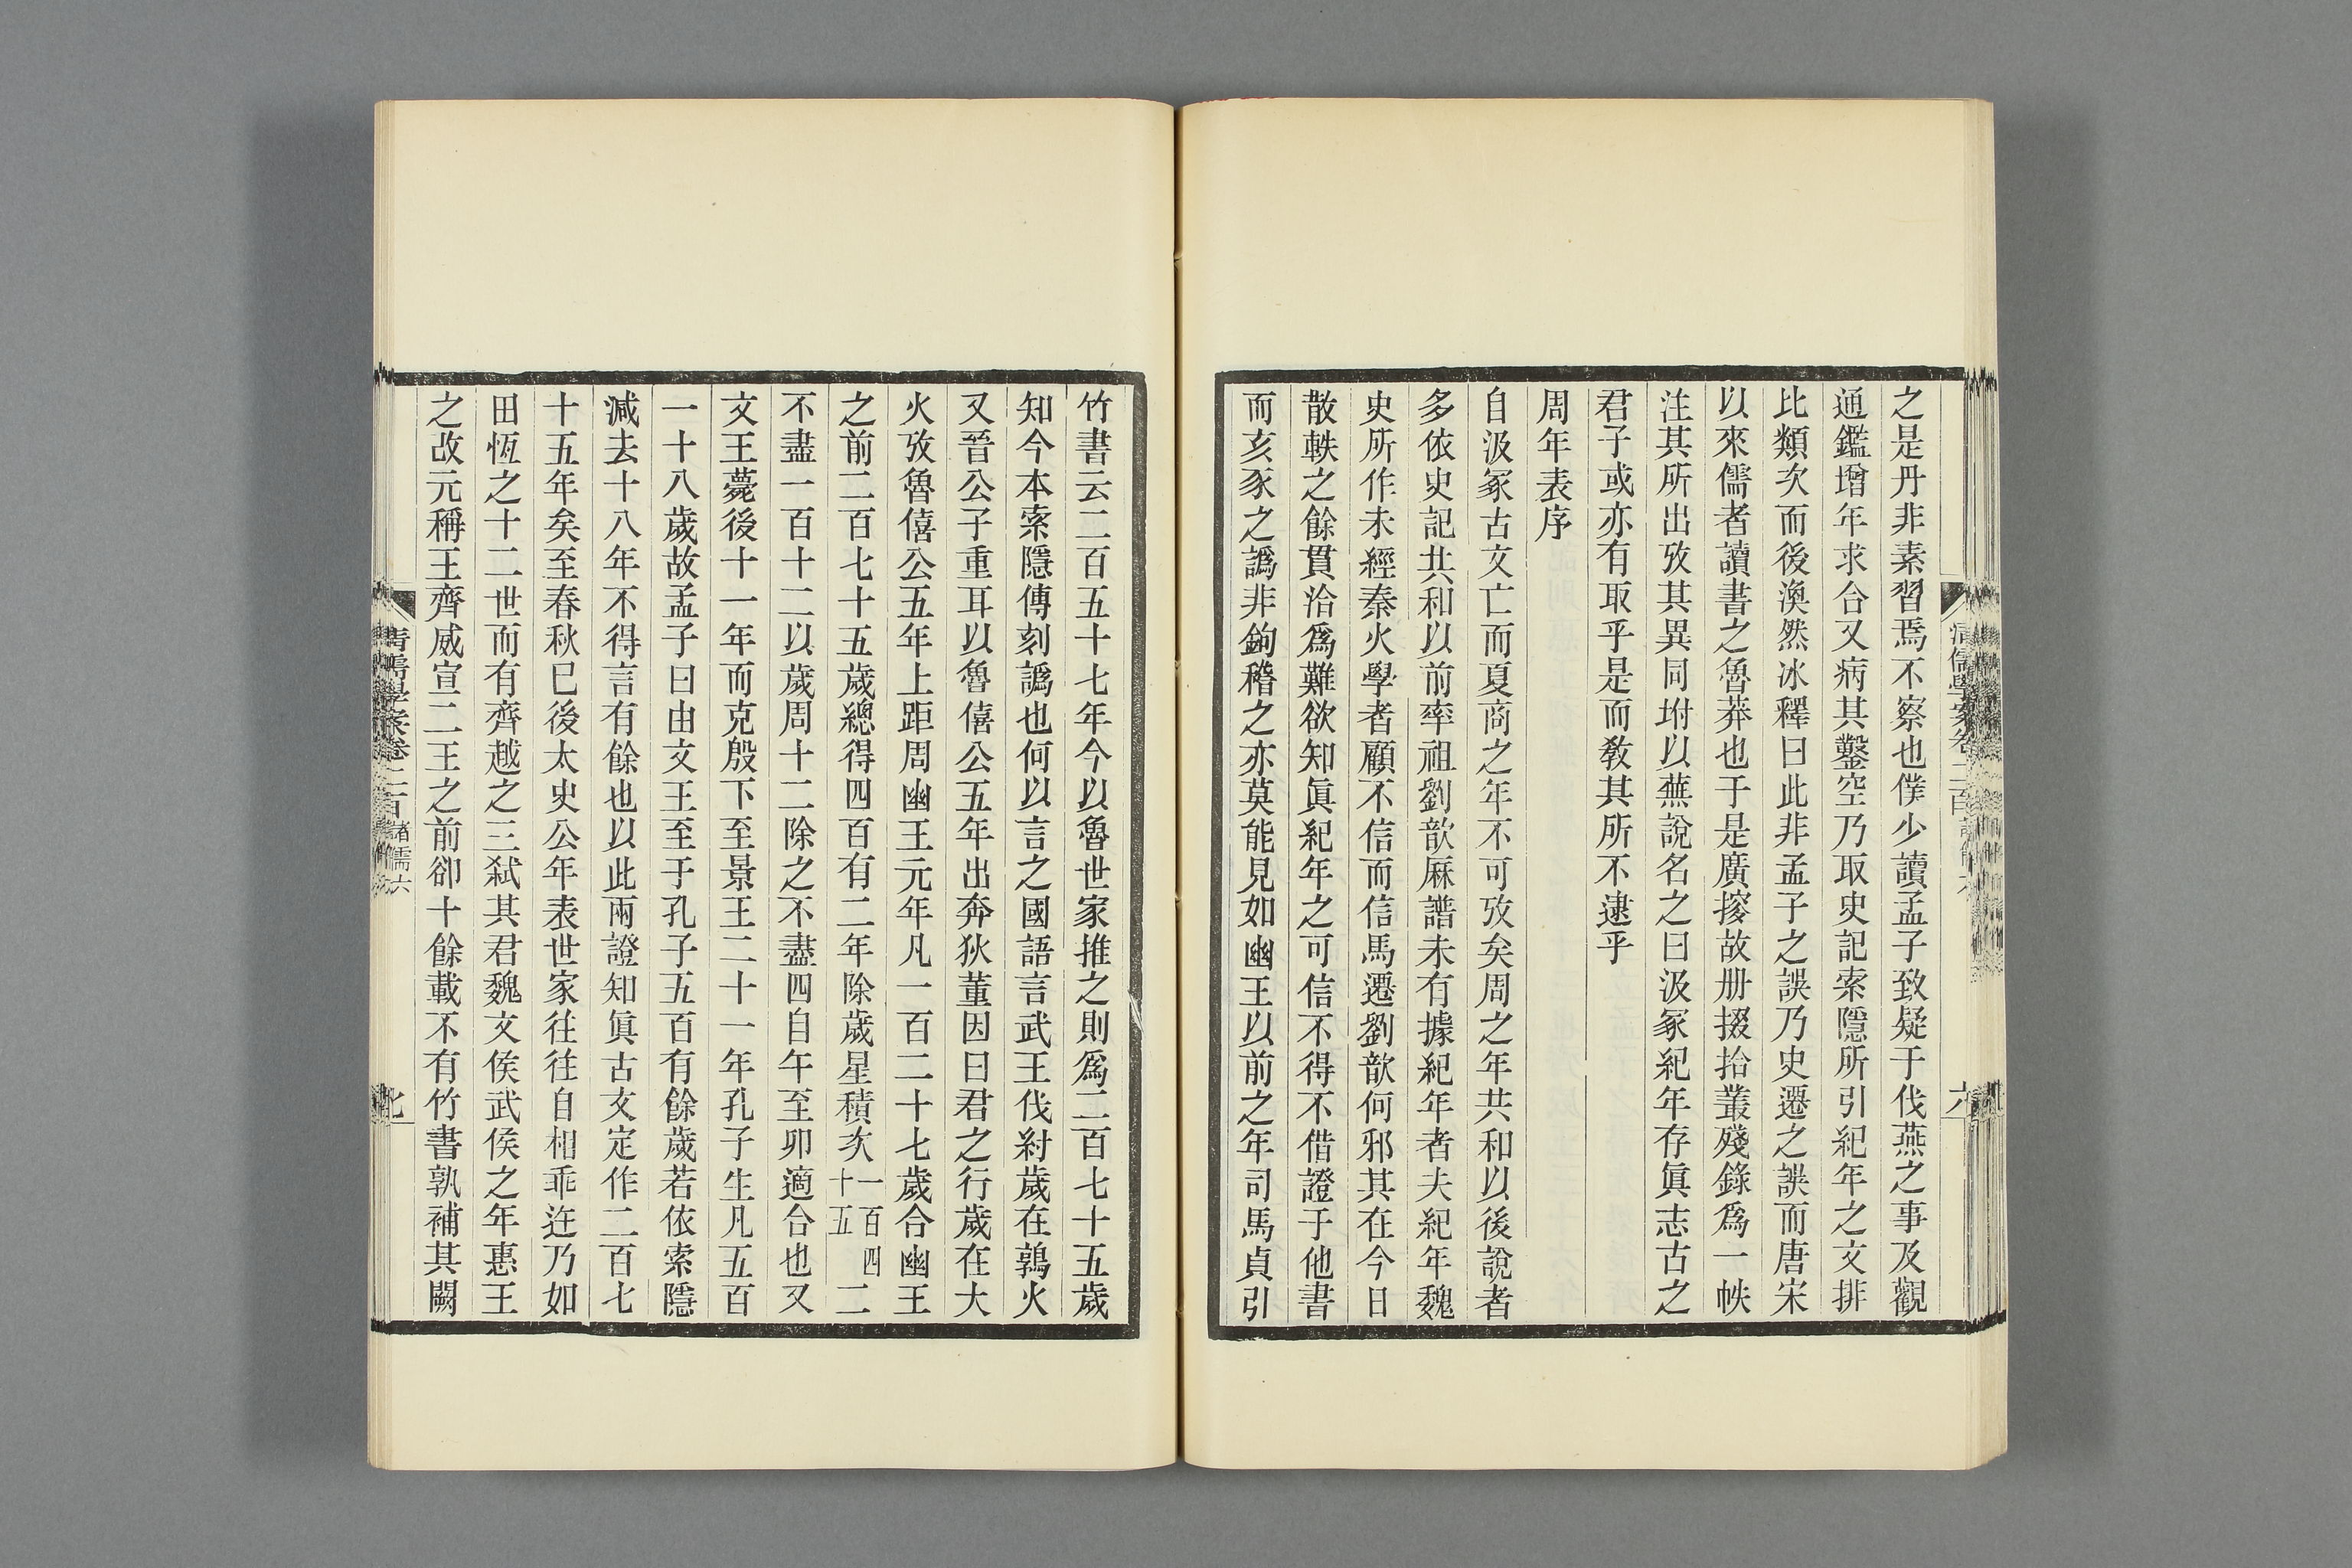 之是丹非素習焉不察也僕少讀孟子致疑于伐燕之事及觀
通鑑增年求合又病其鑿空乃取史記索隱所引紀年之文排
比類次而後渙然冰釋曰此非孟子之誤乃史遷之誤而唐宋
以來儒者讀書之魯莽也于是廣搜故册掇拾叢殘錄爲一帙
注其所出攷其異同坿以蕪說名之曰汲冢紀年存眞志古之
君子或亦有取乎是而敎其所不逮乎
周年表序
自汲冢古文亡而夏商之年不可攷矣周之年共和以後說者
多依史記共和以前率祖劉歆厤譜未有據紀年者夫紀年魏
史所作未經秦火學者顧不信而信馬遷劉歆何邪其在今日
散軼之餘貫洽爲難欲知眞紀年之可信不得不借證于他書
而亥豕之譌非鉤稽之亦莫能見如幽王以前之年司馬貞引
竹書云二百五十七年今以魯世家推之則爲二百七十五歲
知今本索隱傳刻譌也何以言之國語言武王伐紂歲在鶉火
又晉公子重耳以魯僖公五年出奔狄董因曰君之行歲在大
火攷魯僖公五年上距周幽王元年凡一百二十七歲合幽王
之前二百七十五歲總得四百有二年除歲星積次一百四十五二
不盡一百十二以歲周十二除之不盡四自午至卯適合也又
文王薨後十一年而克殷下至景王二十一年孔子生凡五百
一十八歲故孟子曰由文王至于孔子五百有餘歲若依索隱
減去十八年不得言有餘也以此兩證知眞古文定作二百七
十五年矣至春秋巳後太史公年表世家往往自相乖迕乃如
田恆之十二世而有齊越之三弒其君魏文侯武侯之年惠王
之改元稱王齊威宣二王之前卻十餘載不有竹書孰補其闕
清儒學案卷二百諸儒六